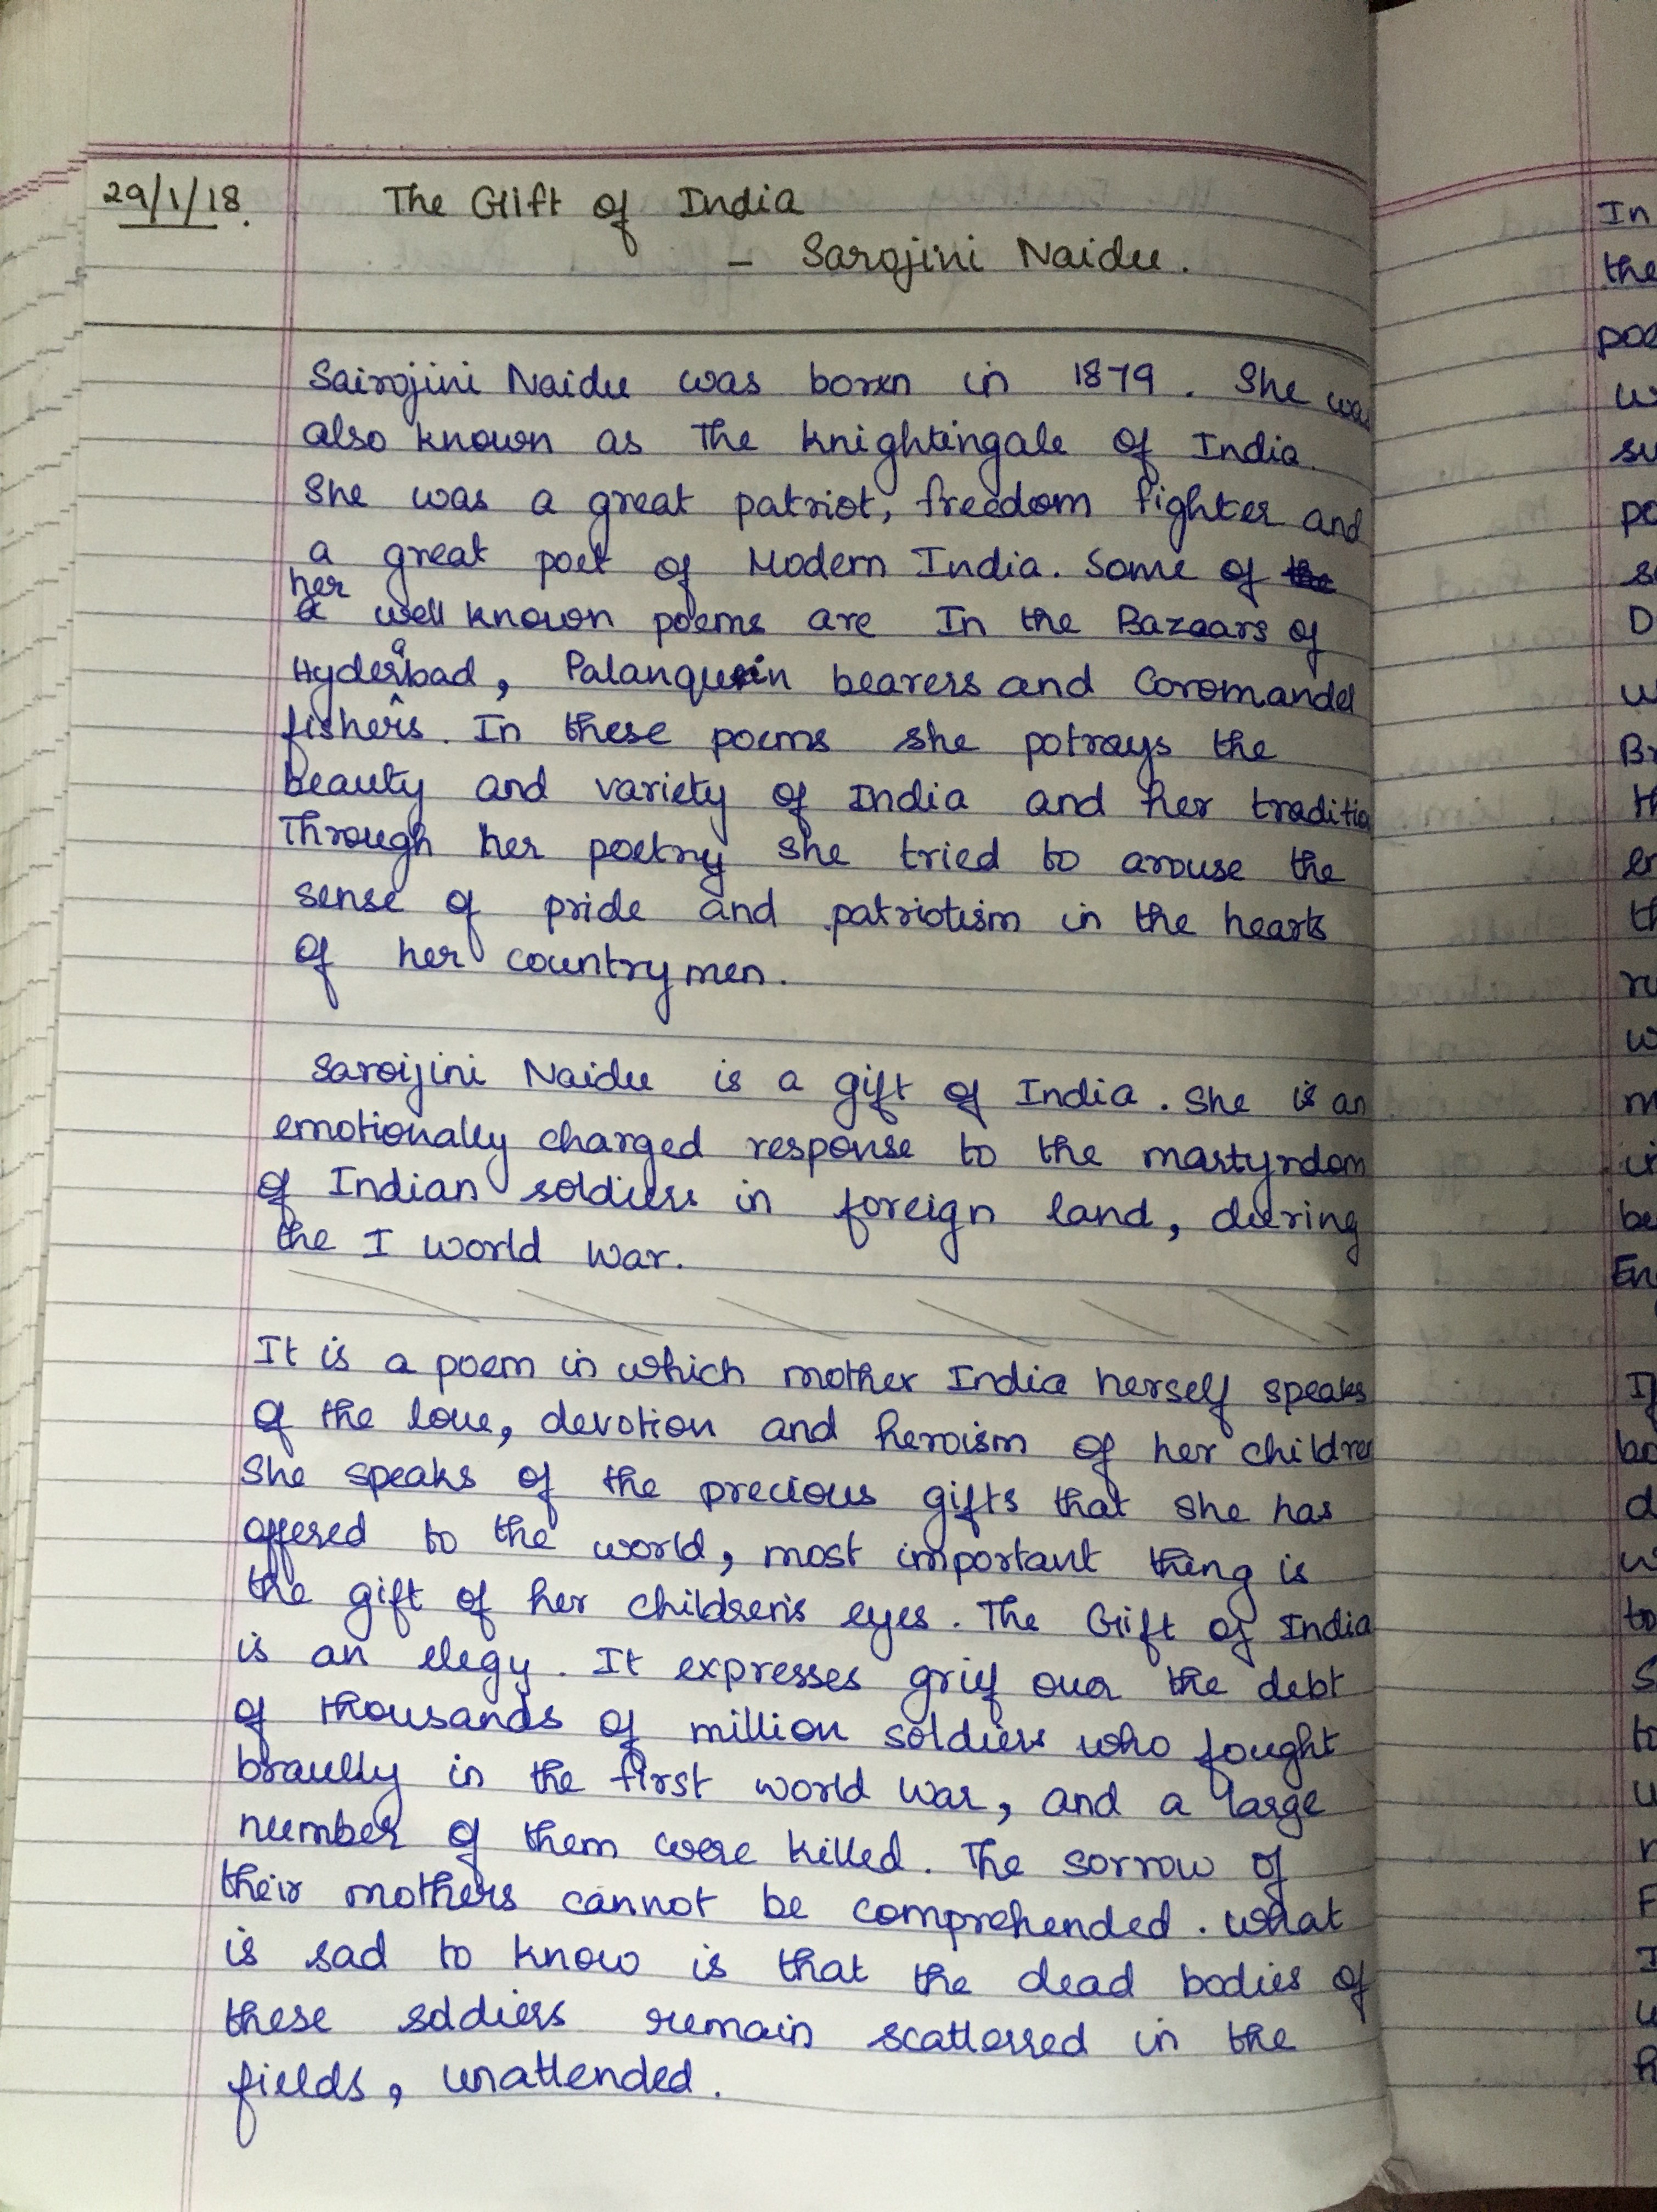 29/1/18. The Gift of India
- Sarojini Naidu.
Sairojini Naidu was born in 1879. She was
also known as The knightingale of India.
She was a great patriot, freedom fighter and
a great poet of Modern India. Some of the
her
a well known poems are In the Bazaars of
Hyderabad, Palanquin bearers and Coromandel
fishers. In these poems she potrays the
beauty and variety of India and her traditio
Through her poetry she tried to arouse the
sense of pride and patriotism in the hearts
of her countrymen.
Saroijini Naidu is a gift of India. She is an
emotionally charged response to the martyrdom
of Indian soldiers in foreign land, during
the I world war.
It is a poem in which mother India herself speaks
of the love, devotion and heroism of her children
She speaks of the precious gifts that she has
offered to the world, most important thing is
the gift of her children's eyes. The Gift of India
is an elegy. It expresses grief over the debt
of thousands of million soldiers who fought
bravelly in the first world war, and a large
number of them were killed. The sorrow of
their mothers cannot be comprehended. What
is sad to know is that the dead bodies of
these soldiers remain scattered in the
fields, unattended.
In
the
poe
w
su
po
s
D
w
Br
th
en
th
ru
w
m
in
be
En
If
bo
d
w
to
S
to
u
r
F
I
u
h